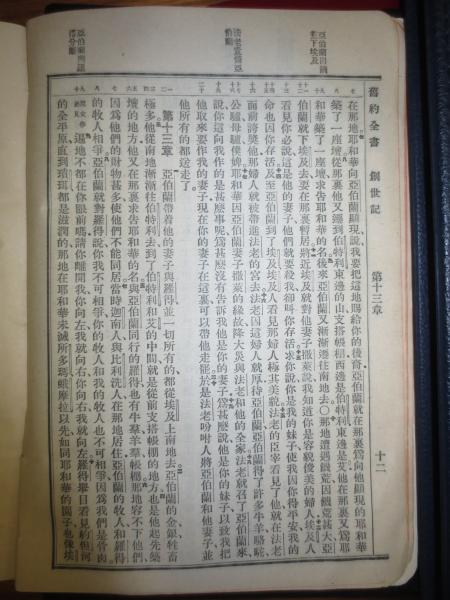 舊約全書 創世記 第十三章 十二
在那地耶和華向亞伯蘭顯現說我要把這地賜給你的後裔亞伯蘭就在那裏爲向他顯現的耶和華
築了一座壇從那裏他又遷到伯特利東邊的山支搭帳棚西邊是伯特利東邊是艾他在那裏又爲耶
和華築了一座壇求告耶和華的名後來亞伯蘭又漸漸遷往南地去〇那地遭遇饑荒因饑荒甚大亞
伯蘭就下埃及去要在那裏暫居將近埃及就對他妻子撒萊說我知道你是容貌俊美的婦人埃及人
看見你必說這是他的妻子他們就要殺我卻叫你存活求你說你是我的妹子使我因你得平安我的
命也因你存活及至亞伯蘭到了埃及埃及人看見那婦人極其美貌法老的臣宰看見了他就在法老
面前誇獎他那婦人就被帶進法老的宮去法老因這婦人就厚待亞伯蘭亞伯蘭得了許多牛羊駱駝
公驢母驢僕婢耶和華因亞伯蘭妻子撒萊的緣故降大災與法老和他的全家法老就召了亞伯蘭來
說你這向我作的是甚麼事呢爲甚麼沒有告訴我他是你的妻子爲甚麼說他是你的妹子以致我把
他取來要作我的妻子現在你的妻子在這裏可以帶他走罷於是法老吩咐人將亞伯蘭和他妻子並
他所有的都送走了
第十三章 亞伯蘭帶着他的妻子與羅得並一切所有的都從埃及上南地去亞伯蘭的金銀牲畜
極多他從南地漸漸往伯特利去到了伯特利和艾的中間就是從前支搭帳棚的地方也是他起先築
壇的地方他又在那裏求告耶和華的名與亞伯蘭同行的羅得也有牛羣羊羣帳棚那地容不下他們
因爲他們的財物甚多使他們不能同居當時迦南人與比利洗人在那地居住亞伯蘭的牧人和羅得
的牧人相爭亞伯蘭就對羅得說你我不可相爭你的牧人和我的牧人也不可相爭因爲我們是骨肉
遍地不都在你眼前嗎請你離開我你向左我就向右你向右我就向左羅得舉目看見約但河
的全平原直到瑣珥都是滋潤的那地在耶和華未滅所多瑪蛾摩拉以先如同耶和華的園子也像埃